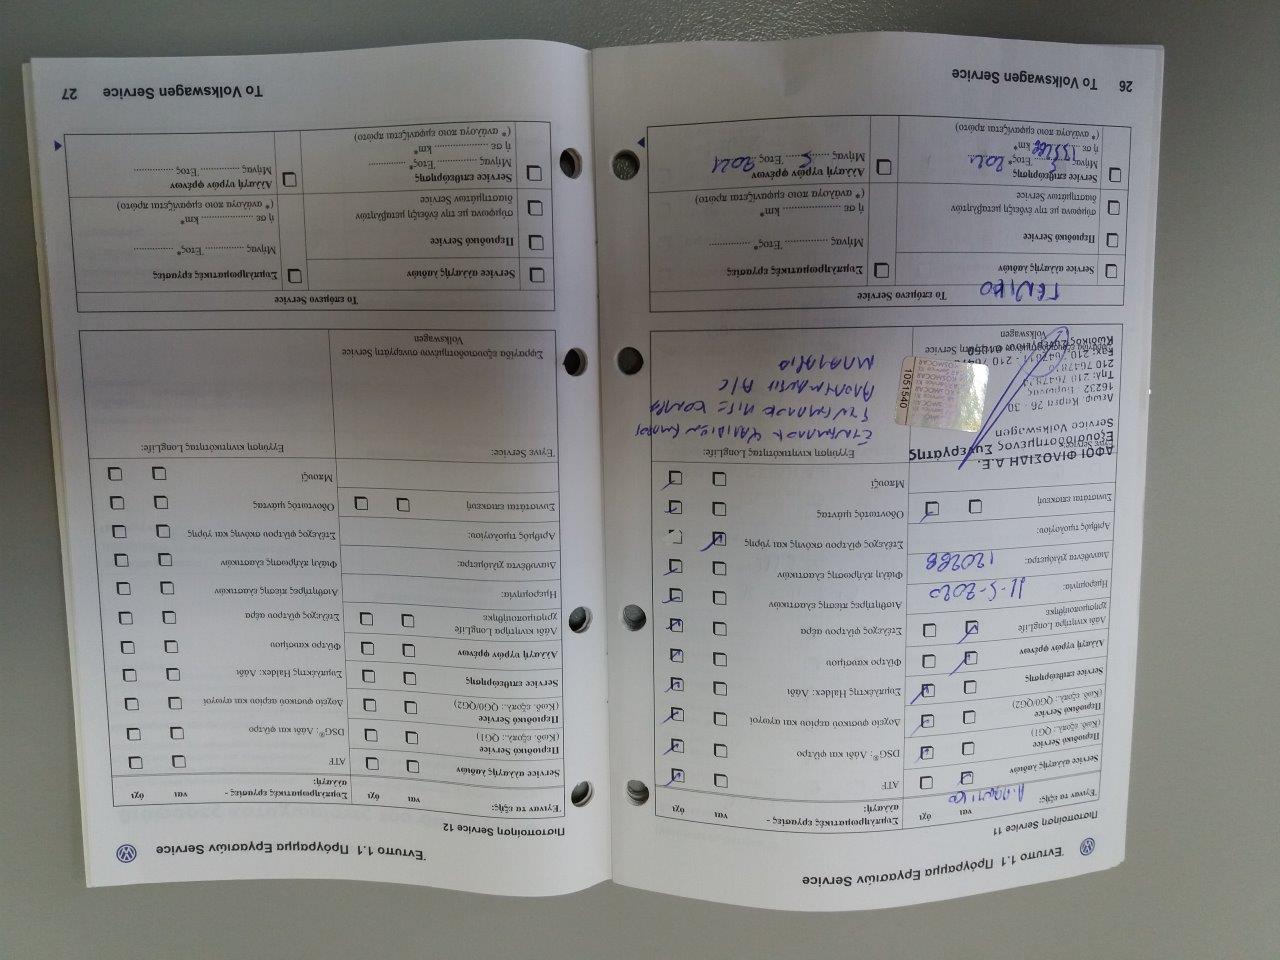 Έντυπο 1.1 Πρόγραμμα Εργασιών Service
Πιστοποίηση Service 11
Έγιναν τα εξής:
ναι
όχι
Service αλλαγής λαδιών
Περιοδικό Service
(Κωδ. εξοπλ.: QG1)
Περιοδικό Service
(Κωδ. εξοπλ.: QG0/QG2)
Service επιθεώρησης
Αλλαγή υγρών φρένων
Λάδι κινητήρα LongLife
χρησιμοποιήθηκε
Ημερομηνία:
11-5-2020
Διανυθέντα χιλιόμετρα:
120288
Αριθμός τιμολογίου:
Συνιστάται επισκευή
Έγινε Service:
ΑΦΟΙ ΦΙΛΟΣΙΔΗ Α.Ε.
Εξουσιοδοτημένος Συνεργάτης
Service Volkswagen
Λεωφ. Καρέα 26 - 30
16232 Βύρωνας
1051540
Συμπληρωματικές εργασίες -
αλλαγή:
ναι
όχι
ATF
DSG®: Λάδι και φίλτρο
Δοχείο φυσικού αερίου και αγωγοί
Συμπλέκτης Haldex: Λάδι
Φίλτρο καυσίμου
Στέλεχος φίλτρου αέρα
Αισθητήρας πίεσης ελαστικών
Φιάλη πλήρωσης ελαστικών
Στέλεχος φίλτρου σκόνης και γύρης
Οδοντωτός ιμάντας
Μπουζί
Εγγύηση κινητικότητας LongLife:
A/C
ΜΠΑΤΑΡΙΑ
Το επόμενο Service
ΓΕΝΙΚΟ
Service αλλαγής λαδιών
Περιοδικό Service
σύμφωνα με την ένδειξη μεταβλητών
διαστημάτων Service
Service επιθεώρησης
Μήνας 5 Έτος* 2021
ή σε km*
(* ανάλογα ποιο εμφανίζεται πρώτο)
Συμπληρωματικές εργασίες
Μήνας ............... Έτος* ...............
ή σε .................... km*
(* ανάλογα ποιο εμφανίζεται πρώτο)
Αλλαγή υγρών φρένων
Μήνας 5 Έτος 2021
26 Το Volkswagen Service
Έντυπο 1.1 Πρόγραμμα Εργασιών Service
Πιστοποίηση Service 12
Έγιναν τα εξής:
ναι
όχι
Service αλλαγής λαδιών
Περιοδικό Service
(Κωδ. εξοπλ.: QG1)
Περιοδικό Service
(Κωδ. εξοπλ.: QG0/QG2)
Service επιθεώρησης
Αλλαγή υγρών φρένων
Λάδι κινητήρα LongLife
χρησιμοποιήθηκε
Ημερομηνία:
Διανυθέντα χιλιόμετρα:
Αριθμός τιμολογίου:
Συνιστάται επισκευή
Έγινε Service:
Σφραγίδα εξουσιοδοτημένου συνεργάτη Service
Volkswagen
Συμπληρωματικές εργασίες -
αλλαγή:
ναι
όχι
ATF
DSG®: Λάδι και φίλτρο
Δοχείο φυσικού αερίου και αγωγοί
Συμπλέκτης Haldex: Λάδι
Φίλτρο καυσίμου
Στέλεχος φίλτρου αέρα
Αισθητήρας πίεσης ελαστικών
Φιάλη πλήρωσης ελαστικών
Στέλεχος φίλτρου σκόνης και γύρης
Οδοντωτός ιμάντας
Μπουζί
Εγγύηση κινητικότητας LongLife:
Το επόμενο Service
Service αλλαγής λαδιών
Περιοδικό Service
σύμφωνα με την ένδειξη μεταβλητών
διαστημάτων Service
Service επιθεώρησης
Μήνας ............... Έτος* ...............
ή σε .................... km*
(* ανάλογα ποιο εμφανίζεται πρώτο)
Συμπληρωματικές εργασίες
Μήνας ............... Έτος* ...............
ή σε .................... km*
(* ανάλογα ποιο εμφανίζεται πρώτο)
Αλλαγή υγρών φρένων
Μήνας ............... Έτος ...............
Το Volkswagen Service 27